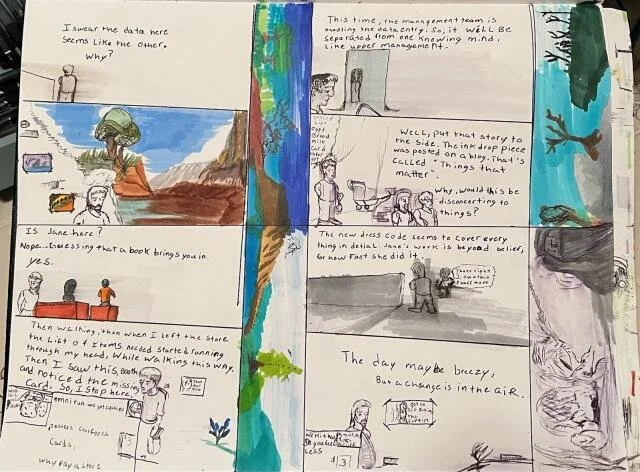 I swear the data here
seems like the other.
Why?
Is Jane here?
Nope.. Guessing that a book brings you in.
yes.
Then walking, than when I left the store
the list of items needed started running
through my head, while walking this way.
Then I saw this booth
and noticed the missing
card. So, I stop here.
Cards,
why pay a store
This time, the management team is
handling the data entry. So, it will be
separated from one knowing mind,
like upper management.
List
eggs
Bread
milk
Card
Well, put that story to
the side. The ink drop piece
was posted on a blog. That's
called "Things that
matter".
Why, would this be
disconcerting to
things?
The new dress code seems to cover every
thing in detial. Jane's work is beyond belief,
for how fast she did it.
Thats right
I
The day maybe breezy,
But a change is in the air.
less
$ 3